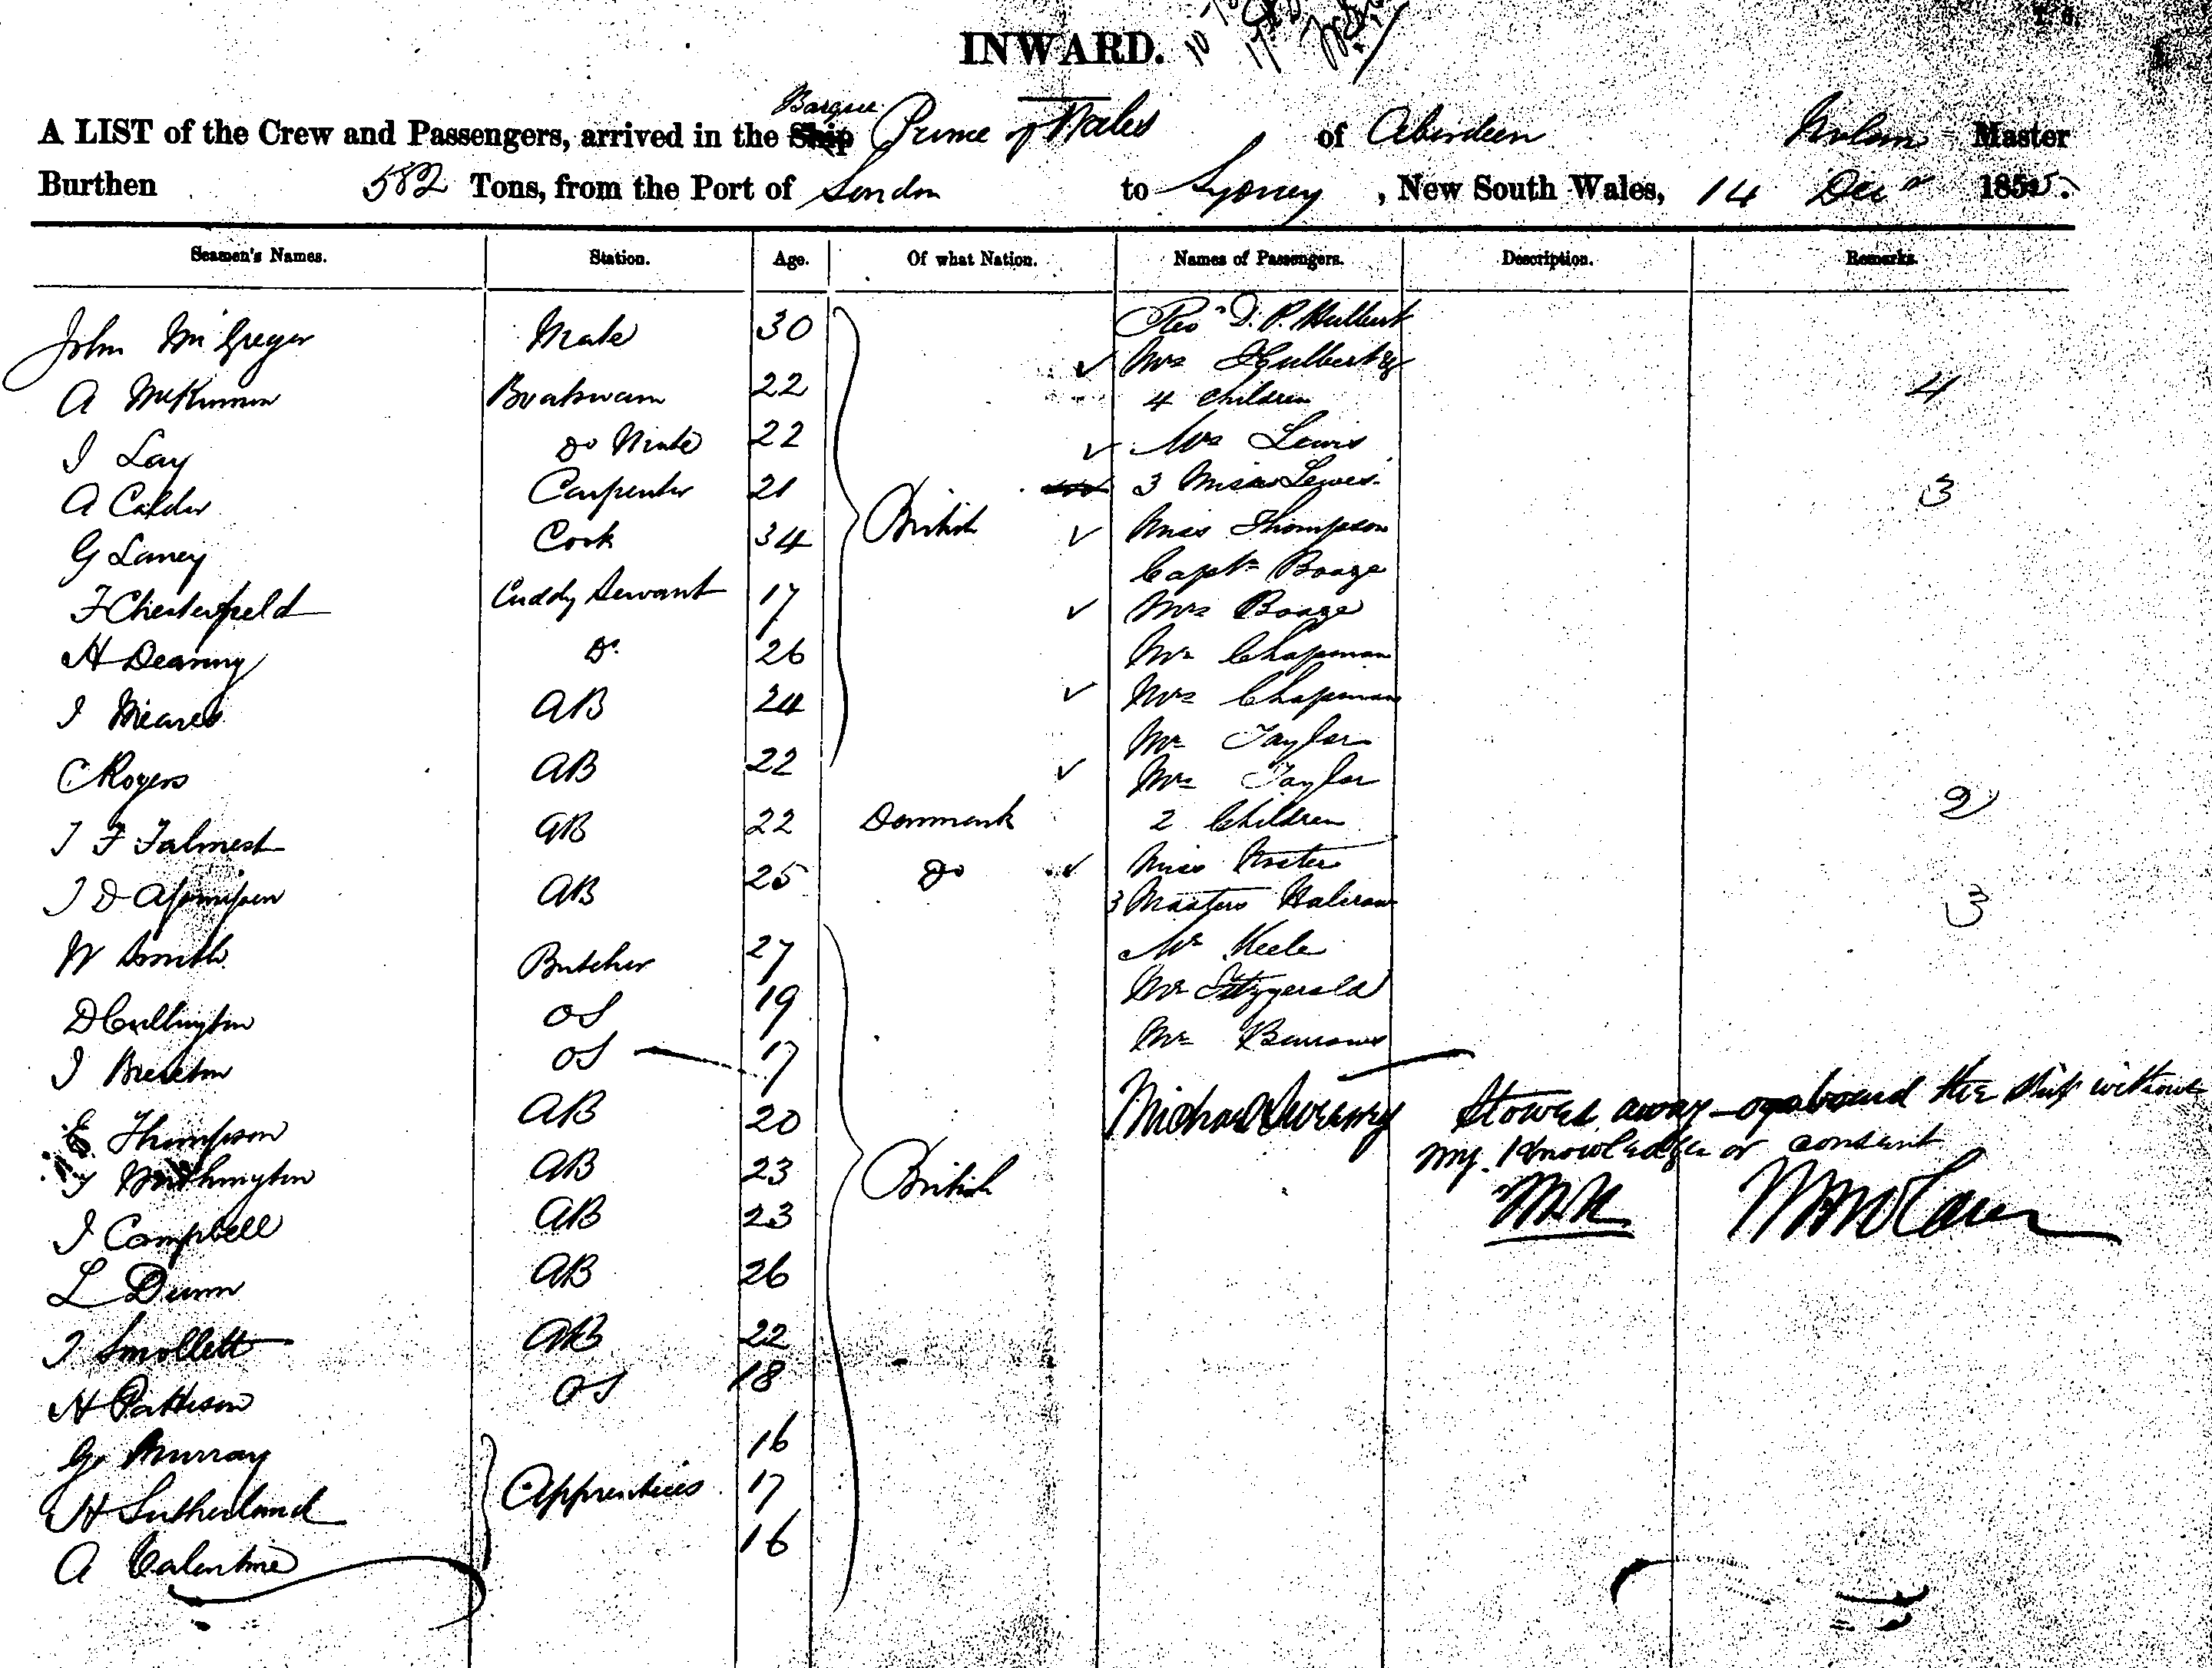 INWARD.
Barque
A LIST of the Crew and Passengers, arrived in the Ship Prince of Wales of Aberdeen Nolan Master
Burthen 582 Tons, from the Port of London to Sydney, New South Wales, 14 Decr 1855.
Seamen's Names. Station. Age. Of what Nation. Names of Passengers. Description. Remarks.
John McGregor Mate 30
A McKinnon Boatswain 22
I Lay Do Mate 22
A Calder Carpenter 21
G Laney Cook 34 British
F Chesterfield Cuddy Servant 17
H Deanny Do 26
I Meares AB 24
C Rogers AB 22
AB 22 Denmark
AB 25 Do
W Smith Butcher 27
D Cullington OS 19
I Brereton OS 17
E Thompson AB 20
AB 23 British
I Campbell AB 23
L Dunn AB 26
I Smollett AB 22
H Pattison OS 18
G Murray 16
H Sutherland Apprentices 17
A Valentine 16
Revd D. P. Hulbert
Mrs Hulbert &
4 Children 4
Mrs Lewis
3 Misses Lewis 3
Miss Thompson
Captn Boaze
Mrs Boaze
Mr Chapman
Mrs Chapman
Mr Taylor
Mrs Taylor
2 Children 2
Miss
3 Masters Halcrow 3
Mr Keele
Mr Fitzgerald
Mr Barrows
Michael Sweeney Stowed away on board the Ship without
my knowledge or consent
W. N. Wm Nolan